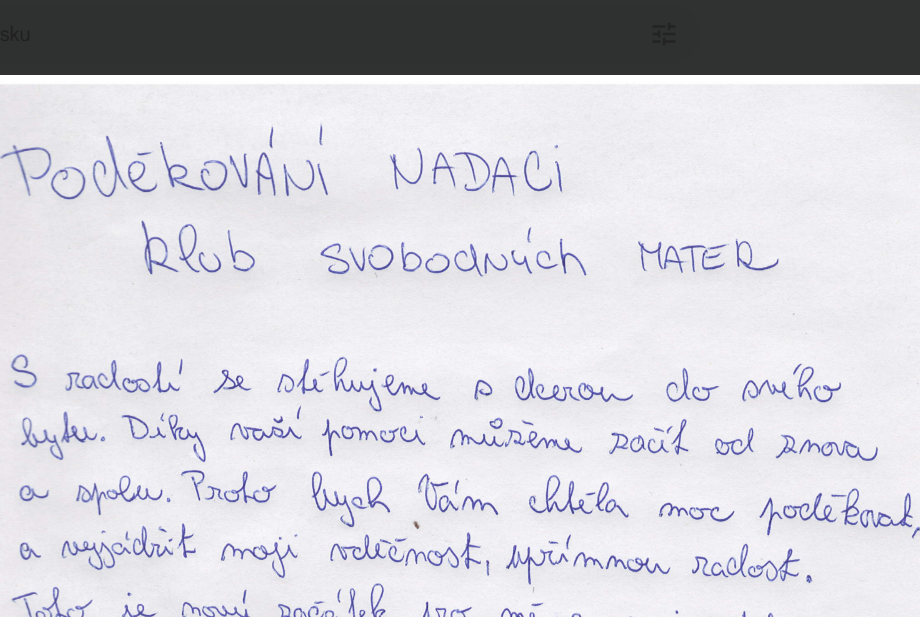 sku
Poděkování NADACI
klub svobodných MATEK
S radostí se stěhujeme s dcerou do svého
bytu. Díky vaší pomoci můžeme začít od znova
a spolu. Proto bych Vám chtěla moc poděkovat,
a vyjádřit moji vděčnost, upřímnou radost.
Toto je nový začátek pro mě